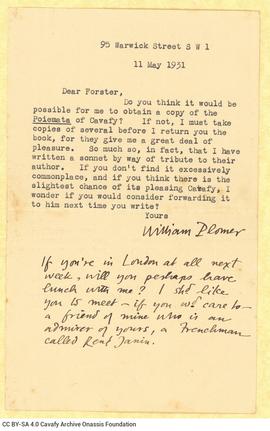 95 Warwick Street S W 1
11 May 1931
Dear Forster,
Do you think it would be
possible for me to obtain a copy of the
Poiemata of Cavafy? If not, I must take
copies of several before I return you the
book, for they give me a great deal of
pleasure. So much so, in fact, that I have
written a sonnet by way of tribute to their
author. If you don't find it excessively
commonplace, and if you think there is the
slightest chance of its pleasing Cavafy, I
wonder if you would consider forwarding it
to him next time you write?
Yours
William Plomer
If you're in London at all next
week, will you perhaps have
lunch with me? I shd like
you to meet – if you wd care to –
a friend of mine who is an
admirer of yours, a Frenchman
called René Janin.
CC BY-SA 4.0 Cavafy Archive Onassis Foundation